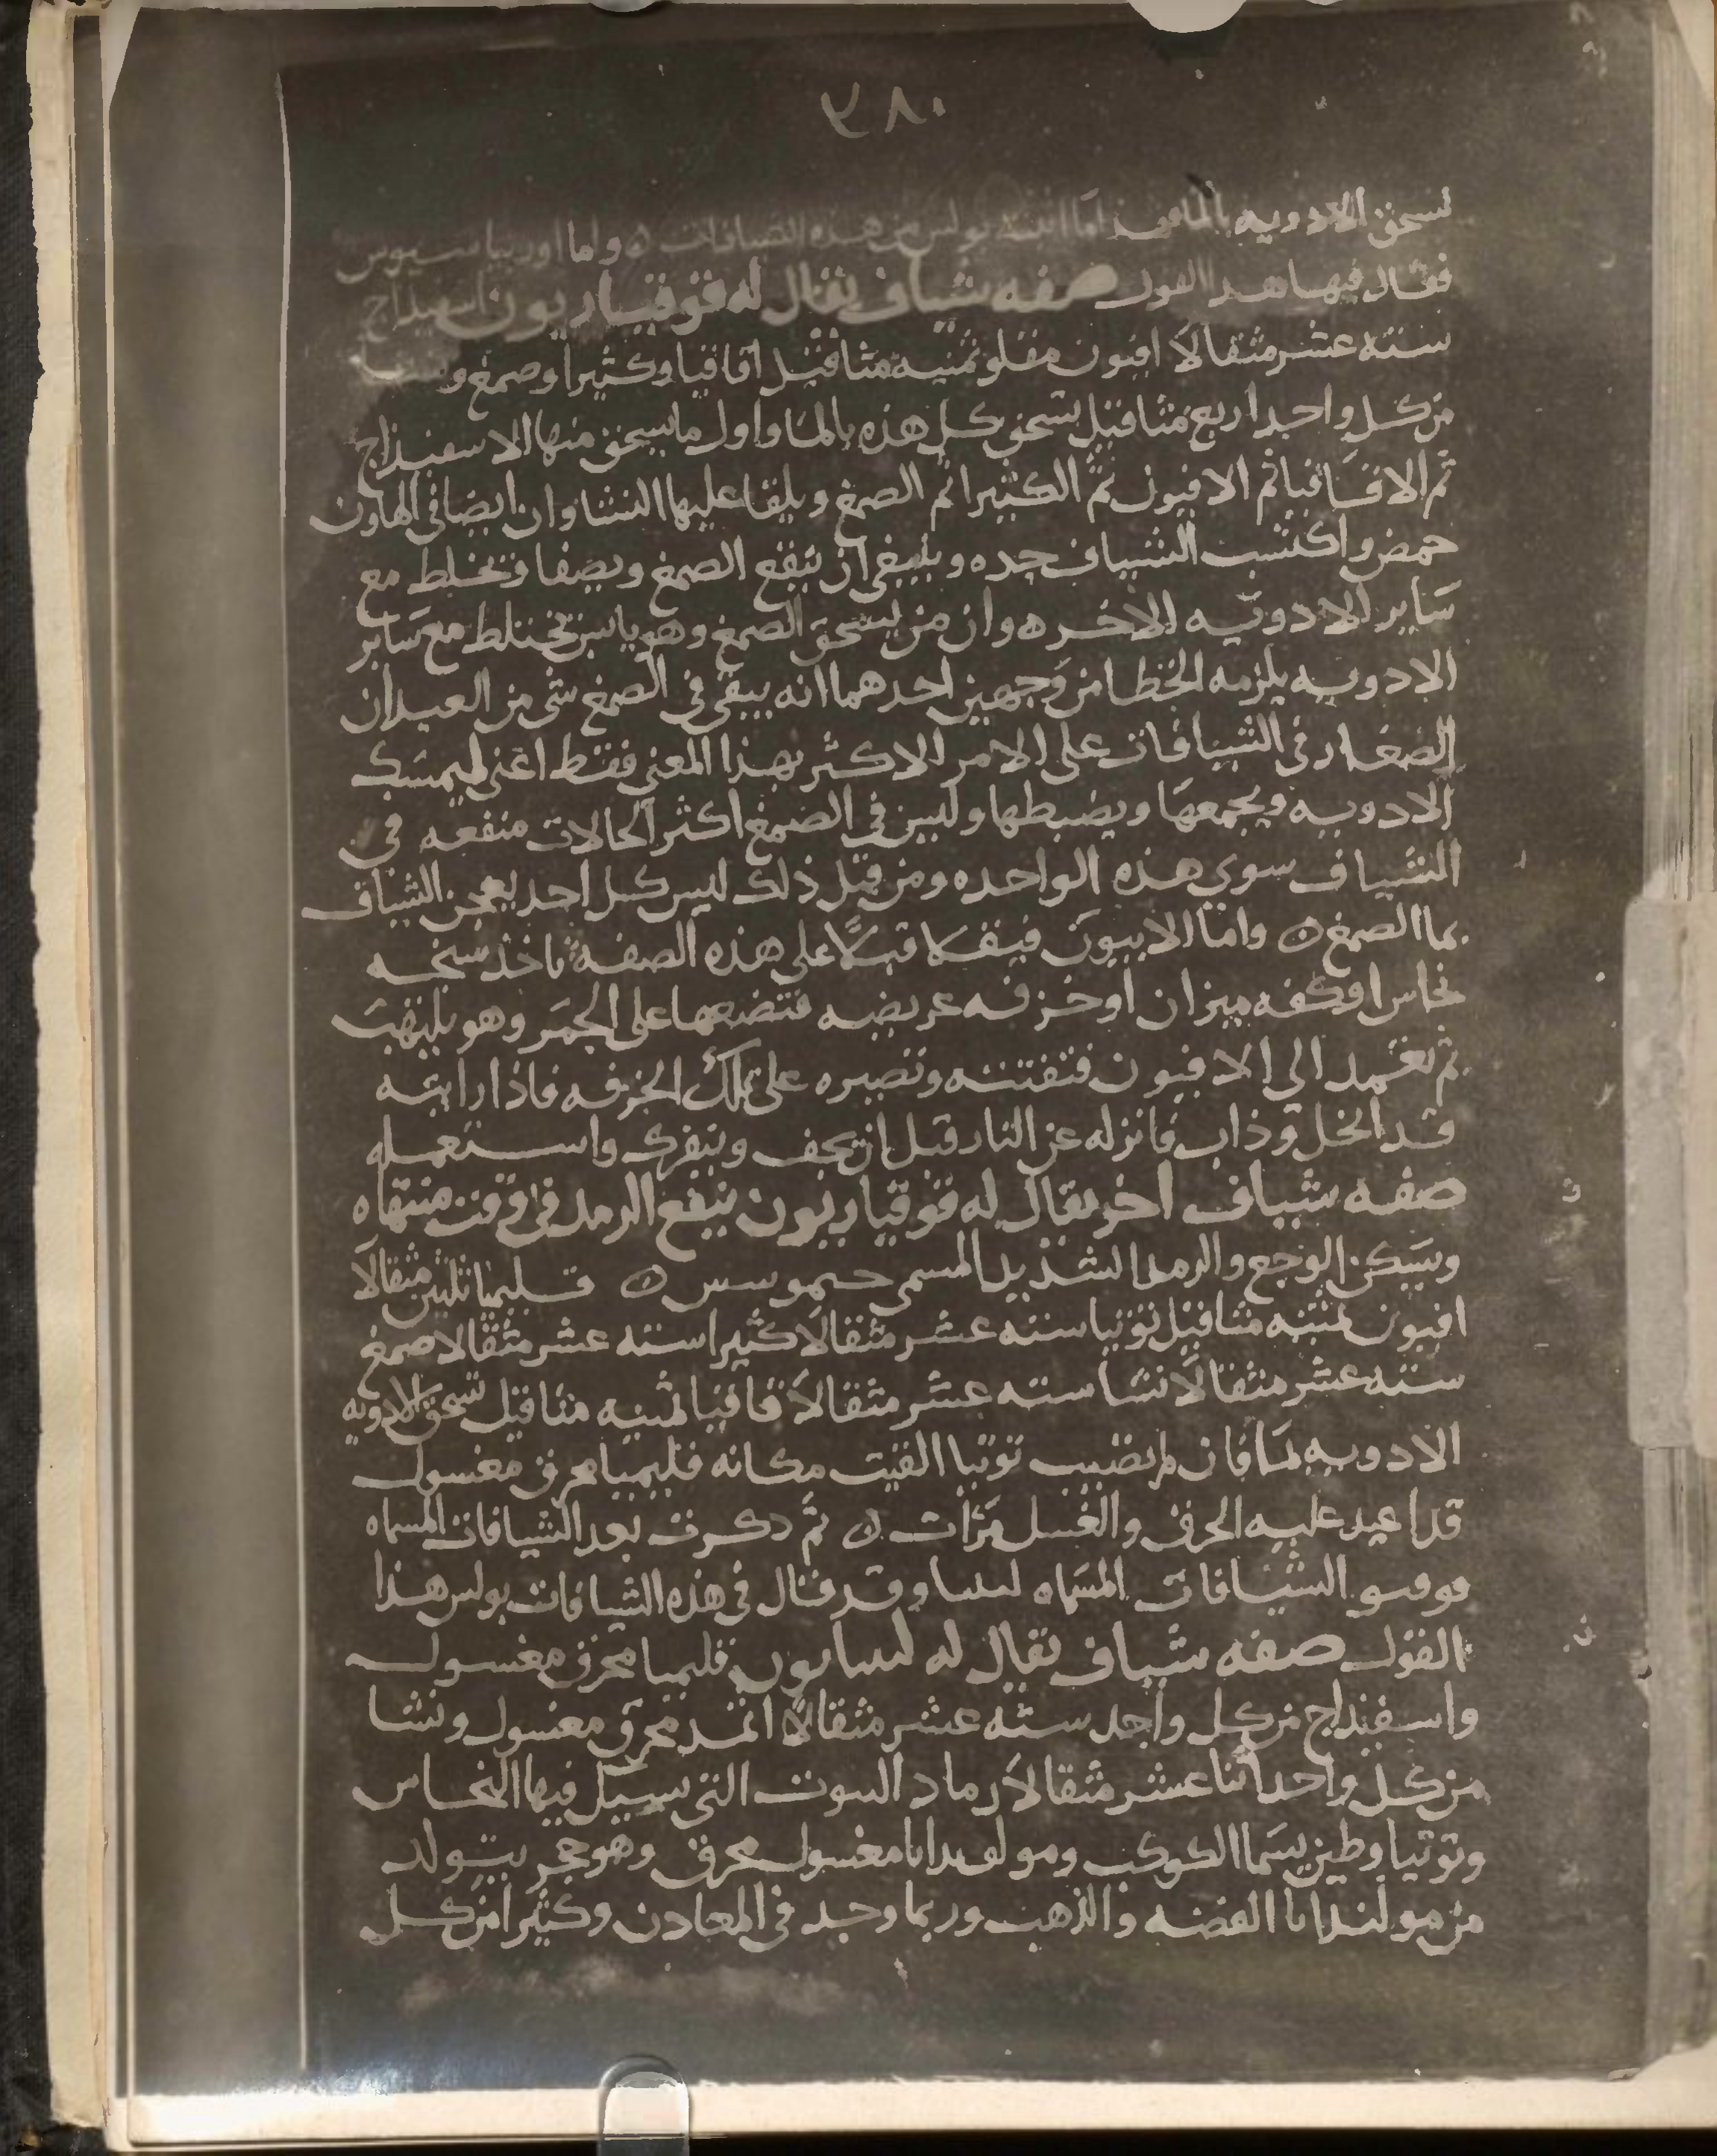 ٣٨٠
تسحق الادويه بالما فهذا ما اثبته بولس من هذه الشيافات ه واما اوريباسيوس
فقال فيها هذا القول صفه شياف يقال له قوقنياريون اسفيذاج
سته عشر مثقالا افيون مقلو ثمنيه مثاقيل اقاقيا وكثيرا وصمغ و
من كل واحد اربع مثاقيل يسحق كل هذه بالما واول ما يسحق منها الاسفيذاج
ثم الاقاقيا ثم الافيون ثم الكثيرا ثم الصمغ ويلقا عليها النشا وان ايضا في الهاون
حمض واكتسب الشياف حده وينبغي ان ينقع الصمغ ويصفا ويخلط مع
ساير الادويه الاخره وان من يسحق الصمغ وهو يابس يختلط مع ساير
الادويه يلزمه الخطا من وجهين احدهما انه يبقي في الصمغ شي من العيدان
الصغار في الشيافات علي الامر الاكثر بهذا المعني فقط اعني ليمسك
الادويه ويجمعها ويضبطها وليس في الصمغ اكثر الحالات منفعه في
الشياف سوي هذه الواحده ومن قبل ذلك ليس كل احد يعجن الشياف
بما الصمغ ه واما الابيون فيقلا قبلا علي هذه الصفه تاخذ سنجه
نحاس او كفه ميزان او خزفه عريضه فتضعها علي الجمر وهو يلتهب
ثم تعمد الي الافيون فتفتته وتصيره علي تلك الخزفه فاذا رايته
قد انحل وذاب فانزله عن النار قبل ان يجف ويتفرك واستعمله
صفه شياف اخر يقال له قوقياريون ينفع الرمد في وقت منتهاه
ويسكن الوجع والرمد الشديد المسمي حيموسس ه قليميا ثلثين مثقالا
افيون ثمنيه مثاقيل توتيا سته عشر مثقالا كثيرا سته عشر مثقالا صمغ
سته عشر مثقالا نشا سته عشر مثقالا اقاقيا ثمنيه مثاقيل تسحق الادويه
الادويه بما فان لم تصيب توتيا القيت مكانه قليميا محرق مغسول
قد اعيد عليه الحرق والغسل مرات ه ثم ذكرت بعد الشيافات المسماه
قوقسو الشيافات المسماه لىىىا وقد قال في هذه الشيافات بولس هذا
القول صفه شياف يقال له لىىاىون قليميا محرق مغسول
واسفيذاج من كل واحد سته عشر مثقالا اثمد محرق مغسول ونشا
من كل واحد اثنا عشر مثقالا رماد البيوت التي يسيل فيها النحاس
وتوتيا وطين يسما الكوكب ومولىدانا مغسول محرق وهو حجر يتولد
من مولىدانا الفضه والذهب وربما وجد في المعادن وكثيرا من كل